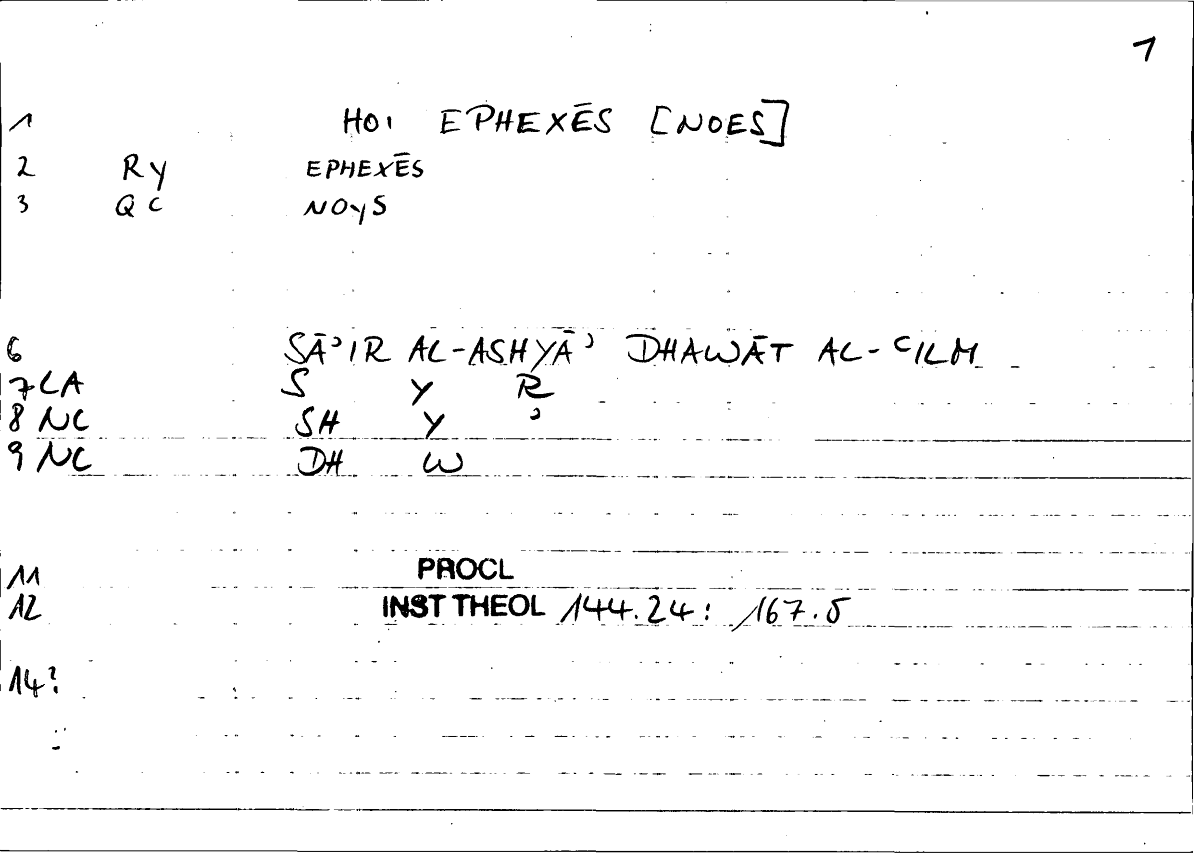 1
1 HOI EPHEXĒS [NOES]
2 RY EPHEXĒS
3 QC NOYS
6 SĀʾIR AL-ASHYĀʾ DHAWĀT AL-ʿILM
7 LA S Y R
8 NC SH Y ʾ
9 NC DH W
11 PROCL
12 INST THEOL 144.24: 167.5
14?